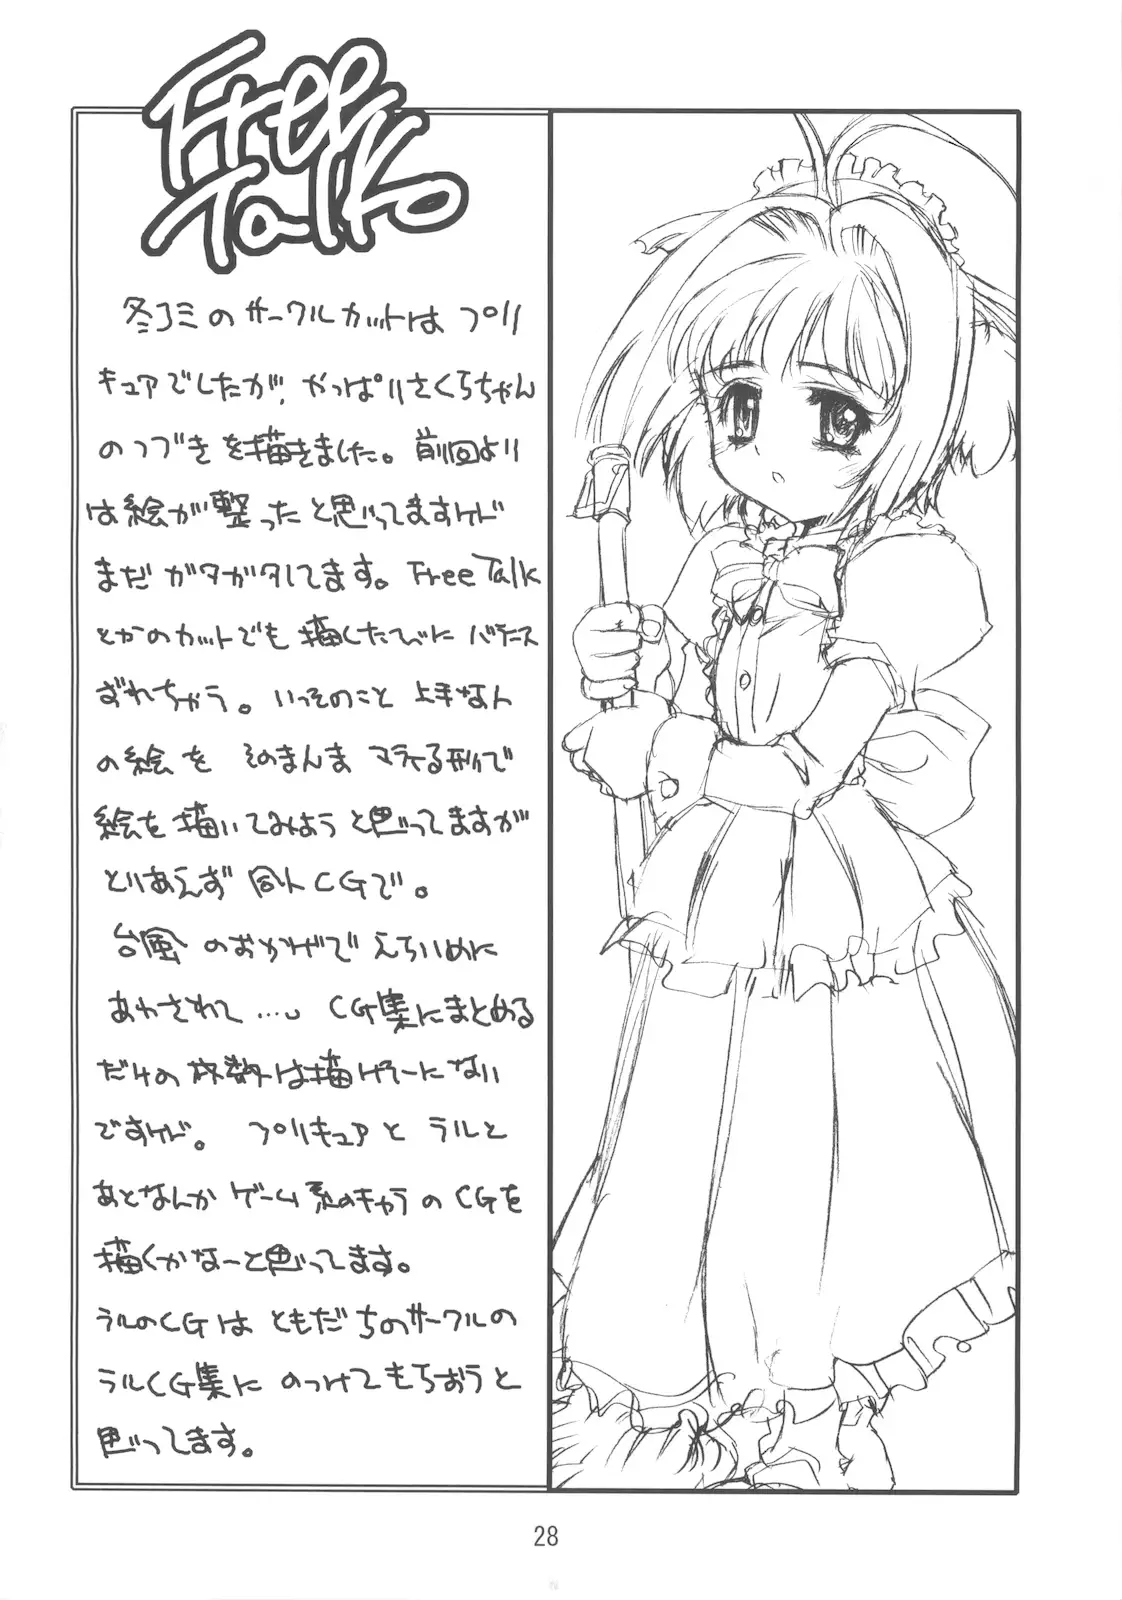 Free
Talk
冬コミのサークルカットはプリ
キュアでしたが、やっぱりさくらちゃん
のつづきを描きました。前回より
は絵が整ったと思ってますけど
まだガタガタしてます。Free Talk
とかのカットでも描くたびにバランス
ずれちゃう。いっそのこと上手な人
の絵をそのまんまマネる形で
絵を描いてみようと思ってますが
とりあえず同人CGで。
台風のおかげでえらいめに
あわされて…。CG集にまとめる
だけの枚数は描けそーにない
ですけど。プリキュアとラルと
あとなんかゲーム系のキャラのCGを
描くかなーと思ってます。
ラルのCGはともだちのサークルの
ラルCG集にのっけてもらおうと
思ってます。
28